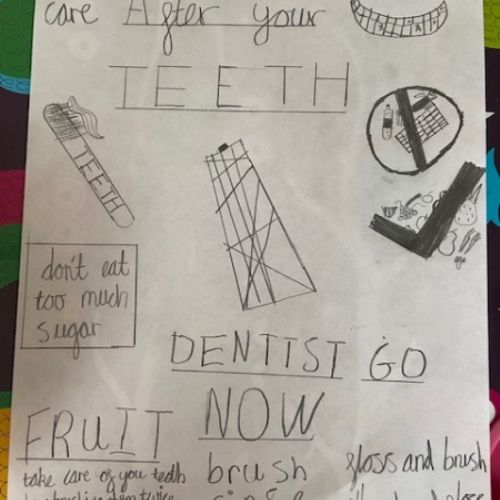 care After your
TEETH
TEETH
don't eat
too much
sugar
DENTIST GO
NOW
FRUIT
take care of you teeth
brush
floss and brush